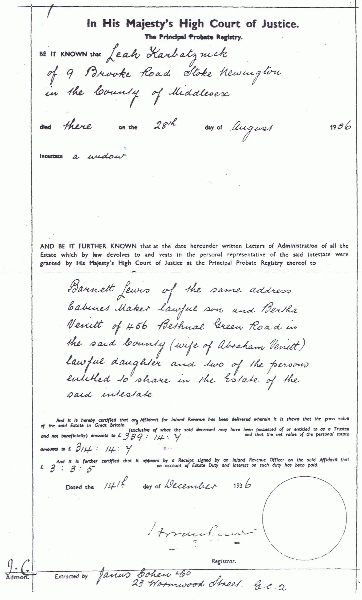 In His Majesty's High Court of Justice.
The Principal Probate Registry.
BE IT KNOWN that Leah Karbatznick
of 9 Brooke Road Stoke Newington
in the County of Middlesex
died there on the 28th day of August 1936
Intestate a widow
AND BE IT FURTHER KNOWN that at the date hereunder written Letters of Administration of all the
Estate which by law devolves to and vests in the personal representative of the said intestate were
granted by His Majesty's High Court of Justice at the Principal Probate Registry thereof to
Barnett Lewis of the same address
Cabinet Maker lawful son and Bertha
Venitt of 456 Bethnal Green Road in
the said County (wife of Abraham Venitt)
lawful daughter and two of the persons
entitled to share in the Estate of the
said intestate
And it is hereby certified that an Affidavit for Inland Revenue has been delivered wherein it is shown that the gross value
of the said Estate in Great Britain
(exclusive of what the said deceased may have been possessed of or entitled to as a Trustee
and not beneficially) amounts to £ 339:14:7 and that the net value of the personal estate
amounts to £ 314:14:7
And it is further certified that it appears by a Receipt signed by an Inland Revenue Officer on the said Affidavit that
£ 3:3:5 on account of Estate Duty and interest on such duty has been paid.
Dated the 14th day of December 1936
Registrar.
J.C.
Admon.
Extracted by James Cohen & Co
23 Wormwood Street. E.C.2